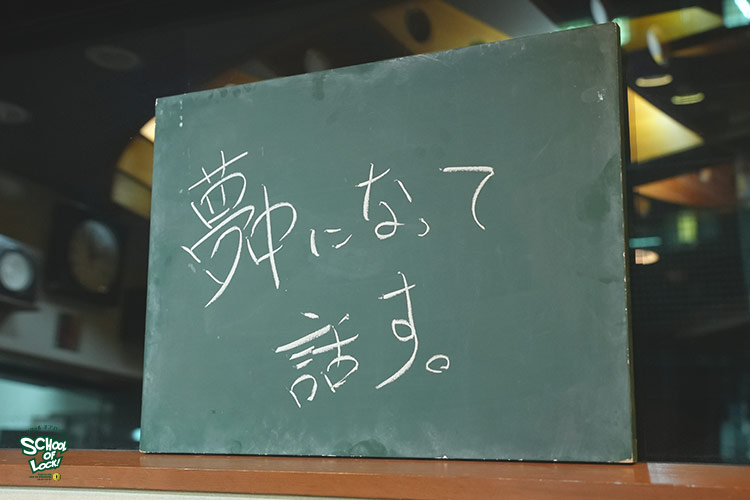 夢中になって
話す。
SCHOOL
OF
LOCK!